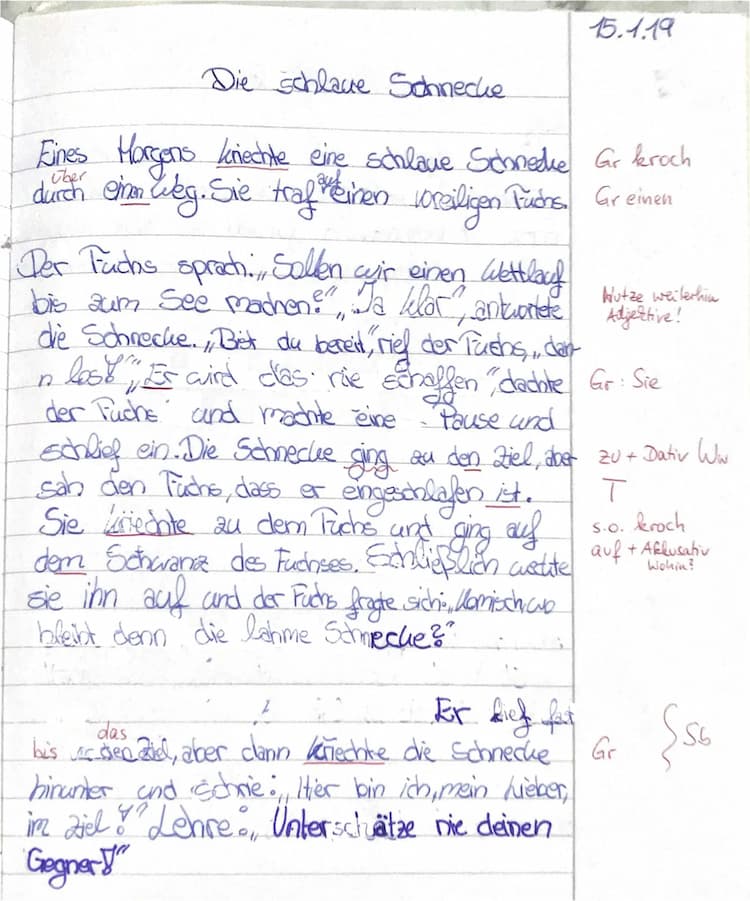 15.1.19
Die schlaue Schnecke
Eines Morgens kriechte eine schlaue Schnecke Gr kroch
über auf
durch einen Weg. Sie traf einen voreiligen Fuchs. Gr einen
Der Fuchs sprach: „Sollen wir einen Wettlauf
bis zum See machen?" „Ja klar", antwortete Nutze weiterhin
die Schnecke. „Bist du bereit", rief der Fuchs, „dan- Adjektive!
n los!" „Er wird das nie schaffen", dachte Gr: Sie
der Fuchs und machte eine Pause und
schlief ein. Die Schnecke ging zu den Ziel, aber zu + Dativ Ww
sah den Fuchs, dass er engeschlafen ist. T
Sie kriechte zu dem Fuchs und ging auf s.o. kroch
dem Schwanz des Fuchses. Schließlich weckte auf + Akkusativ
Wohin?
sie ihn auf und der Fuchs fragte sich: „Komisch, wo
bleibt denn die lahme Schnecke?"
Er lief fast
das
bis den Ziel, aber dann kriechte die Schnecke Gr Sb
hinunter und schrie: „Hier bin ich, mein Lieber,
im Ziel!" Lehre: „Unterschätze nie deinen
Gegner!"